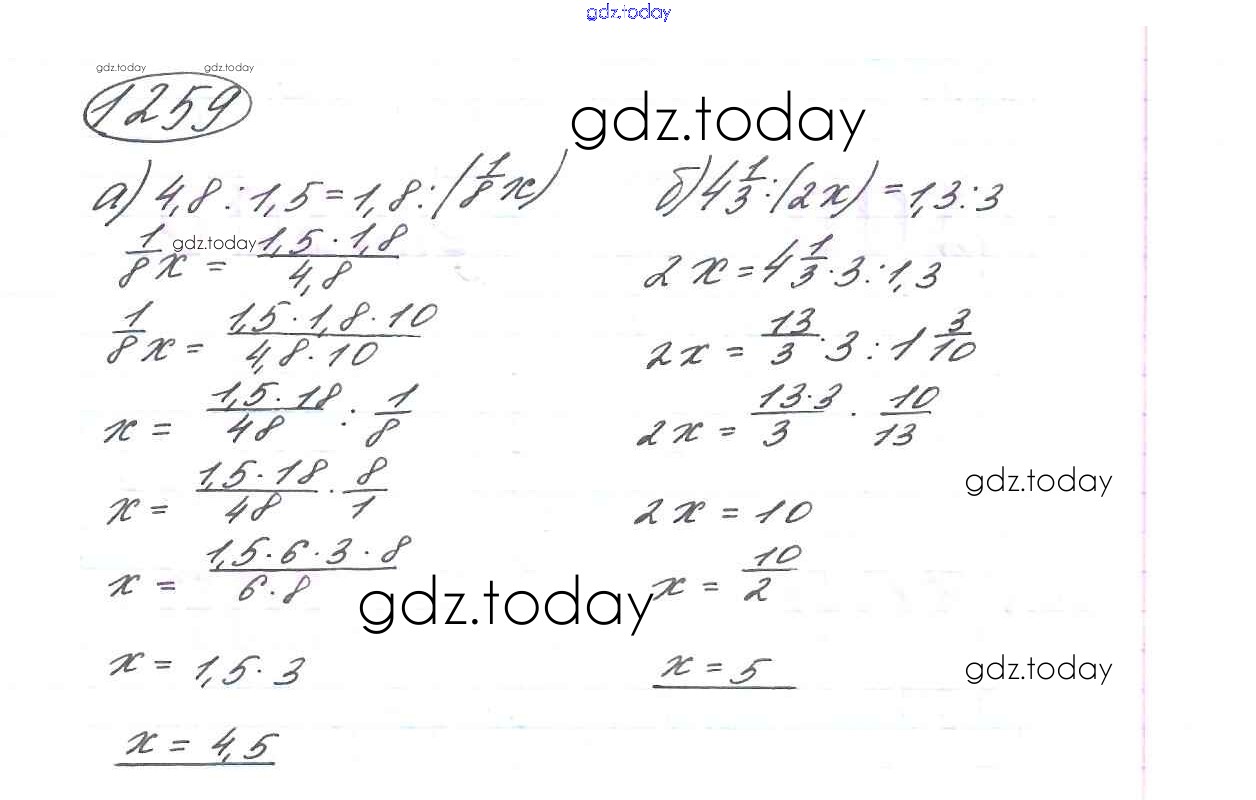 gdz.today
gdz.today gdz.today
1259
gdz.today
а) 4,8 : 1,5 = 1,8 : (1/8 x)
1/8 x = (1,5 · 1,8)/4,8
gdz.today
1/8 x = (1,5 · 1,8 · 10)/(4,8 · 10)
x = (1,5 · 18)/48 : 1/8
x = (1,5 · 18)/48 · 8/1
x = (1,5 · 6 · 3 · 8)/(6 · 8)
x = 1,5 · 3
x = 4,5
б) 4 1/3 : (2x) = 1,3 : 3
2x = 4 1/3 · 3 : 1,3
2x = 13/3 · 3 : 1 3/10
2x = (13·3)/3 · 10/13
gdz.today
2x = 10
x = 10/2
gdz.today
x = 5
gdz.today